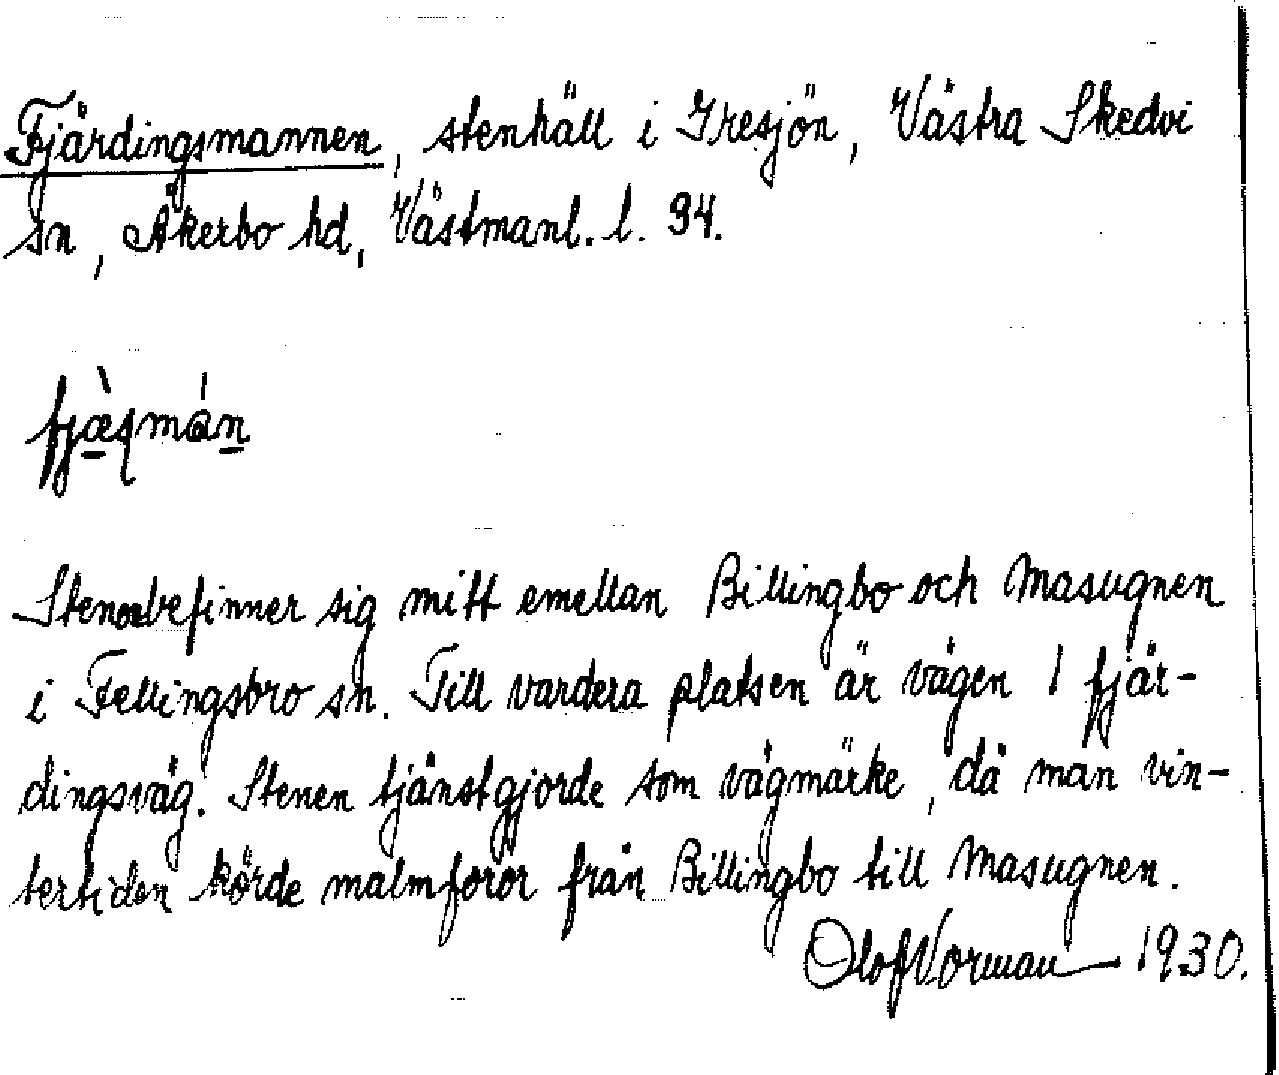 Fjärdingsmannen, stenhäll i Iresjön, Västra Skedvi
sn, Åkerbo hd, Västmanl. l. 94.
Stenen befinner sig mitt emellan Billingbo och Masugnen
i Fellingsbro sn. Till vardera platsen är vägen 1 fjär-
dingsväg. Stenen tjänstgjorde som vägmärke, då man vin-
tertiden körde malmforor från Billingbo till Masugnen.
Olof Norman 1930.